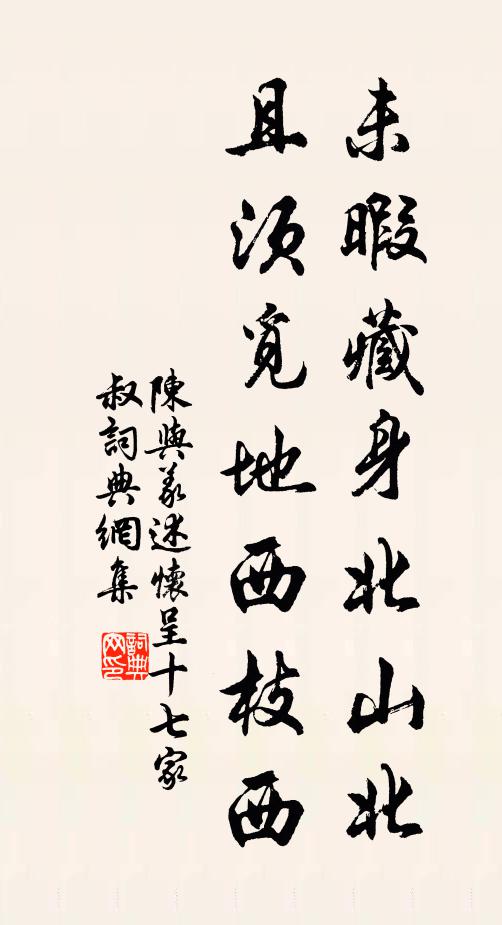 未暇藏身北山北
且須覓地西枝西
陳與義述懷呈十七家
叔詞典網集
詞典
网印